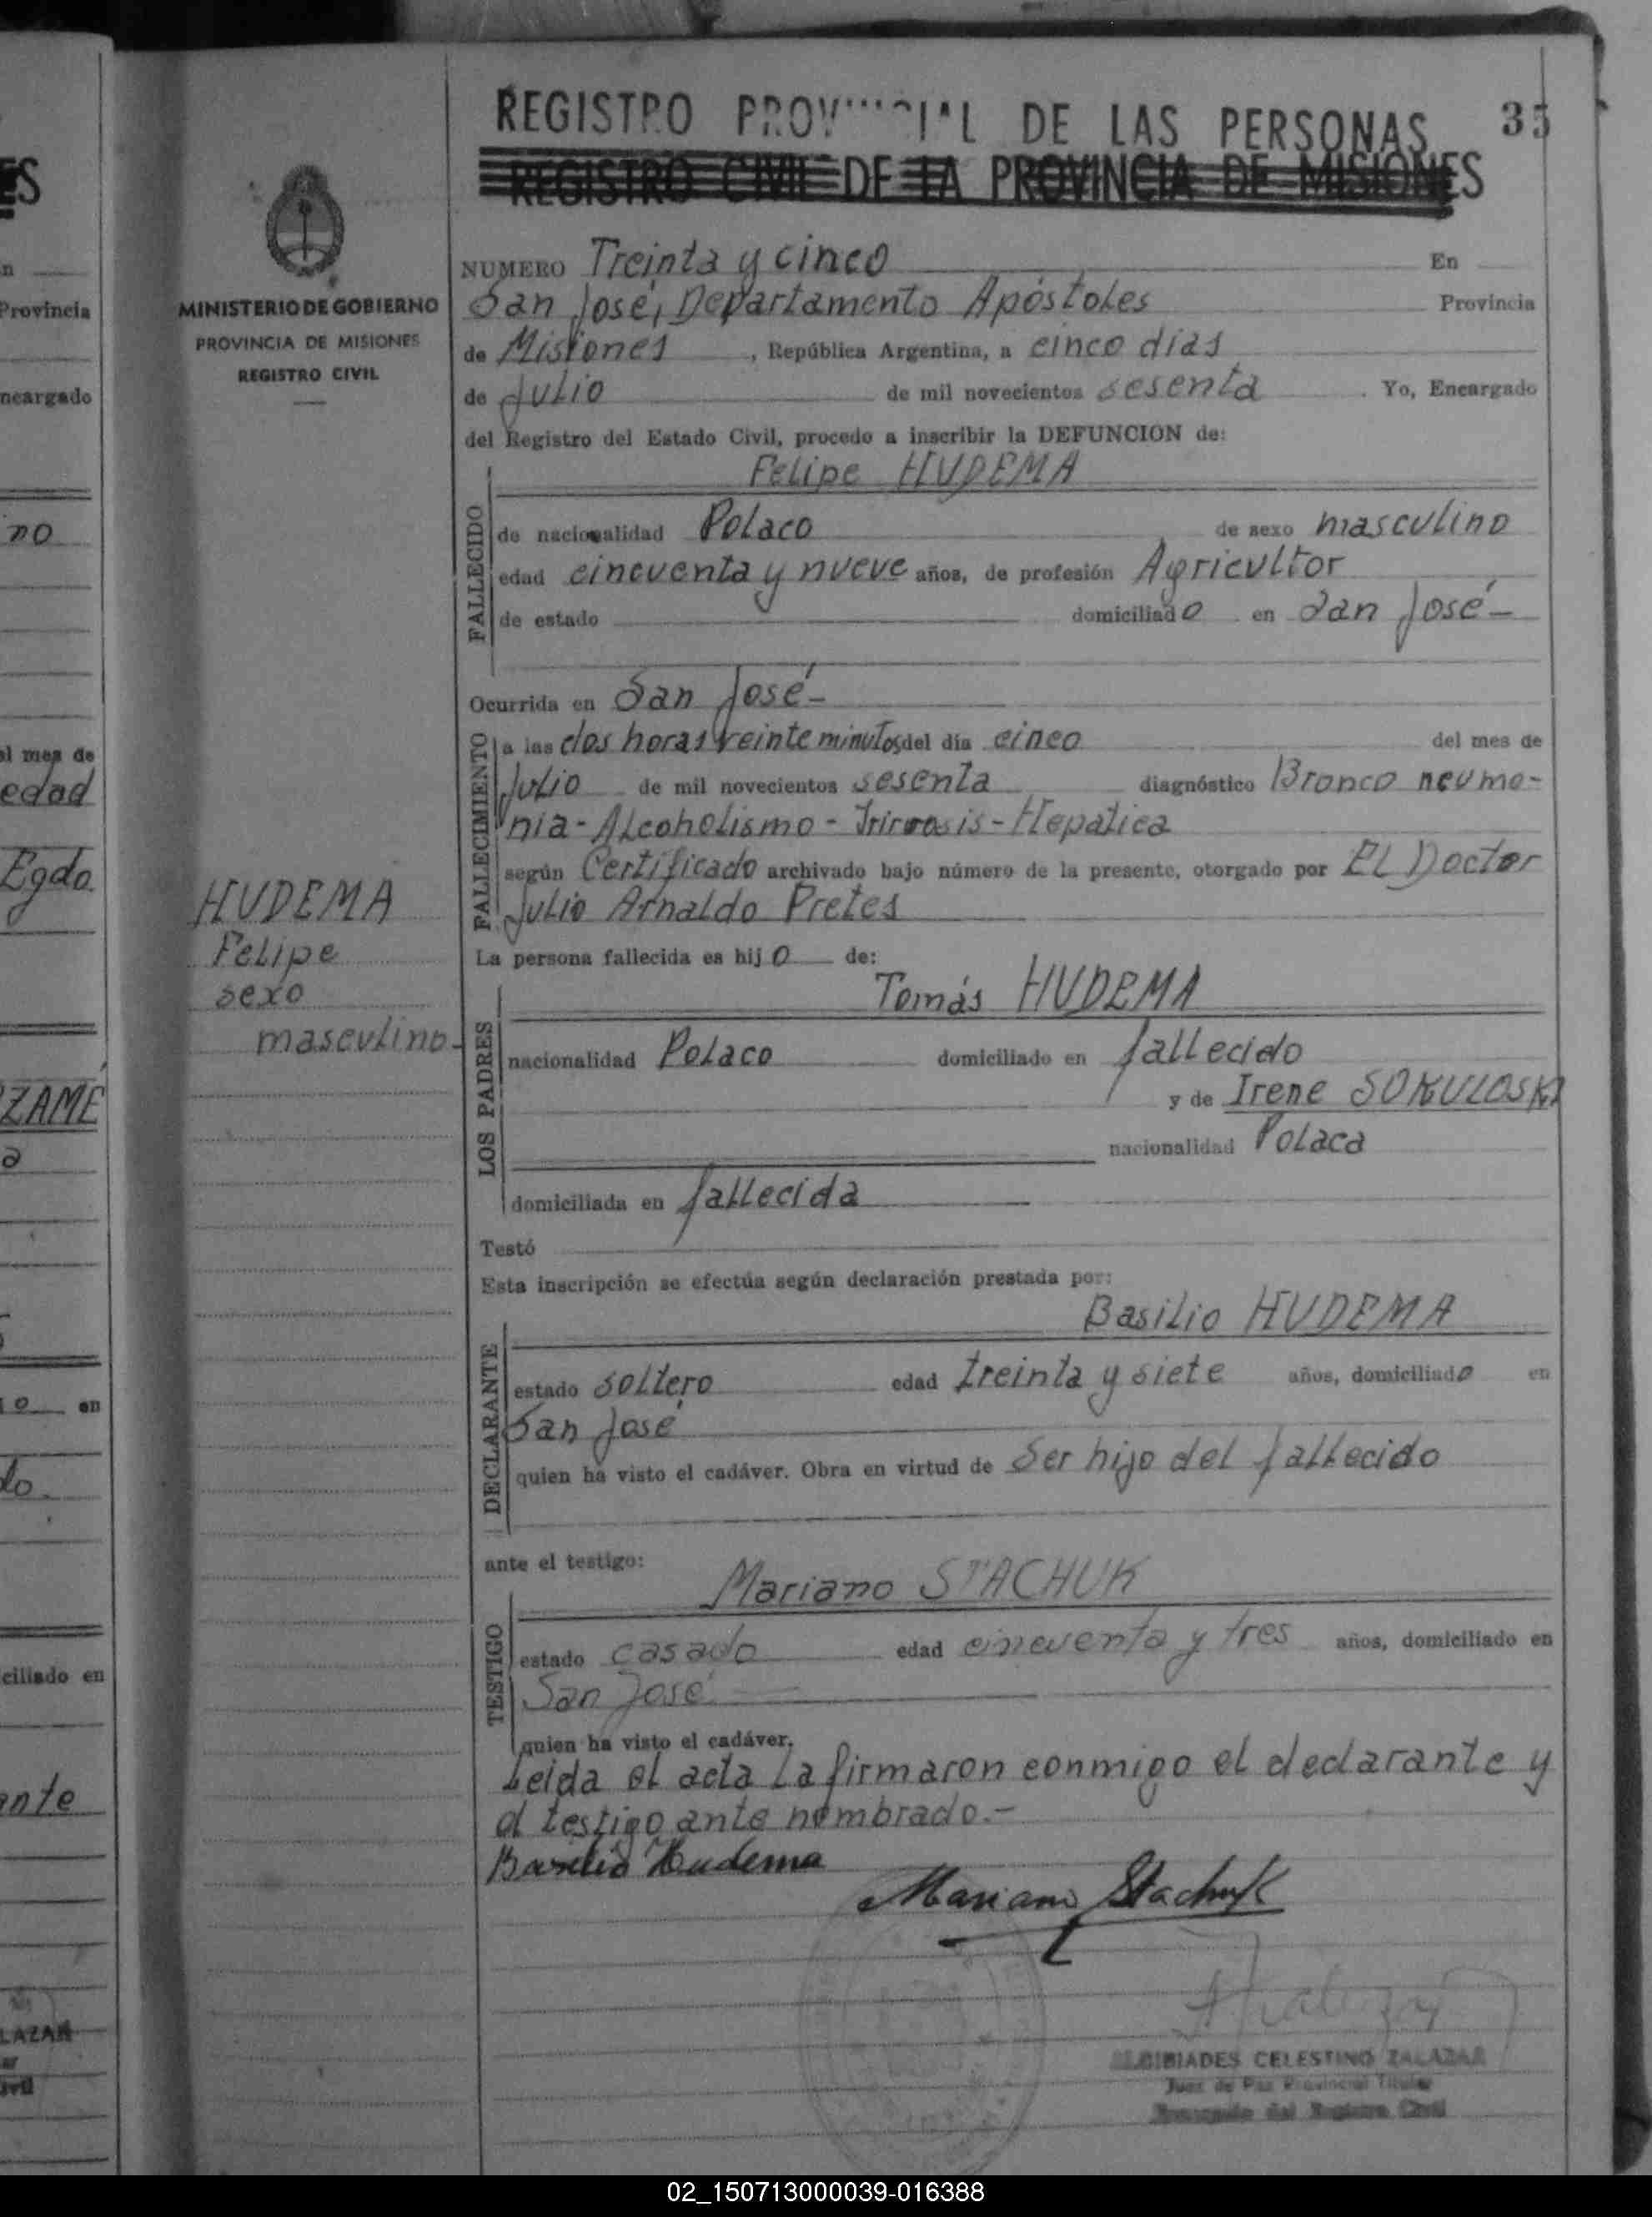 REGISTRO PROVINCIAL DE LAS PERSONAS 35
REGISTRO CIVIL DE LA PROVINCIA DE MISIONES
MINISTERIO DE GOBIERNO
PROVINCIA DE MISIONES
REGISTRO CIVIL
NUMERO Treinta y cinco En
San José, Departamento Apóstoles Provincia
de Misiones, República Argentina, a cinco dias
de Julio de mil novecientos sesenta. Yo, Encargado
del Registro del Estado Civil, procedo a inscribir la DEFUNCION de:
Felipe HUDEMA
FALLECIDO
de nacionalidad Polaco de sexo masculino
edad cincuenta y nueve años, de profesión Agricultor
de estado domiciliado en San José-
Ocurrida en San José-
FALLECIMIENTO
a las dos horas veinte minutos del día cinco del mes de
Julio de mil novecientos sesenta diagnóstico Bronco neumo-
nia-Alcoholismo- -Hepatica
según Certificado archivado bajo número de la presente, otorgado por El Doctor
Julio Arnaldo Pretes
HUDEMA
Felipe
sexo
masculino-
La persona fallecida es hijo de:
Tomás HUDEMA
LOS PADRES
nacionalidad Polaco domiciliado en fallecido
y de Irene SOKULOSKI
nacionalidad Polaca
domiciliada en fallecida
Testó
Esta inscripción se efectúa según declaración prestada por:
Basilio HUDEMA
DECLARANTE
estado soltero edad treinta y siete años, domiciliado en
San José
quien ha visto el cadáver. Obra en virtud de Ser hijo del fallecido
ante el testigo:
Mariano STACHUK
TESTIGO
estado casado edad cincuenta y tres años, domiciliado en
San José.
quien ha visto el cadáver.
Leida el acta la firmaron conmigo el declarante y
el testigo ante nombrado.-
Basilio Hudema
Mariano Stachuk
ALCIBIADES CELESTINO ZALAZAR
Juez de Paz Provincial Titular
Encargado del Registro Civil
02_150713000039-016388